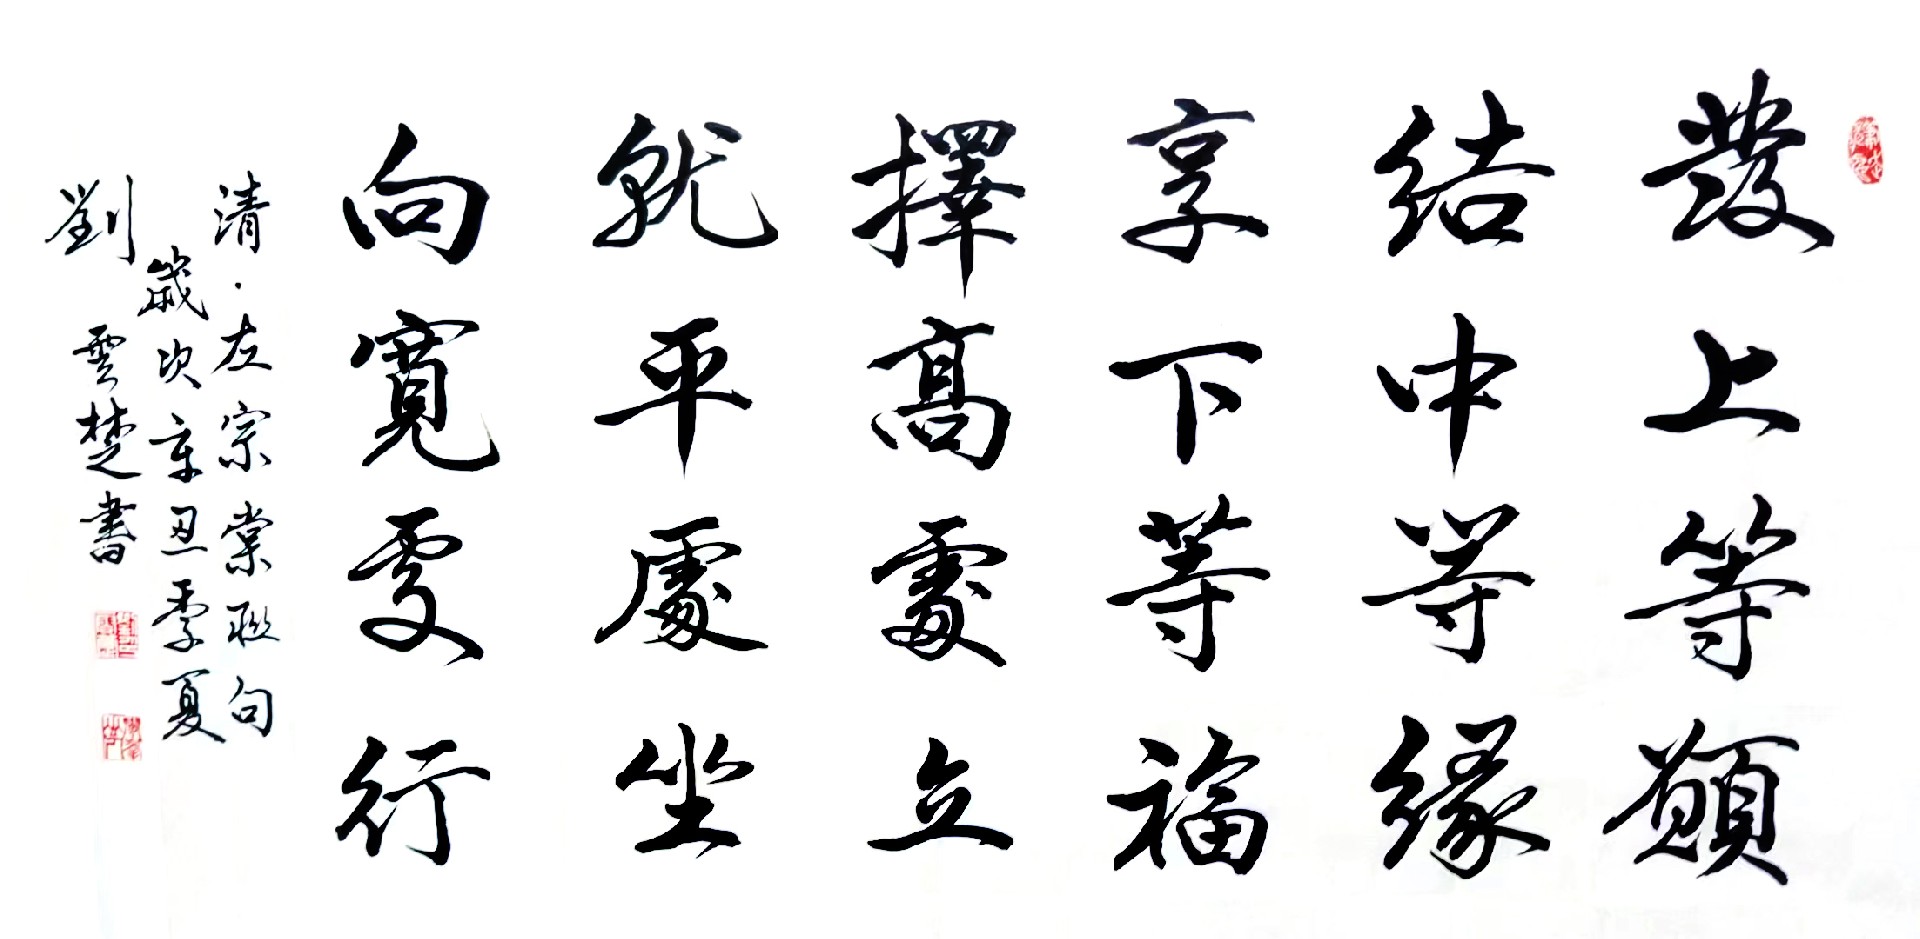 發上等願
結中等緣
享下等福
擇高處立
就平處坐
向寬處行
清·左宗棠联句
歲次辛丑季夏
劉雲楚書